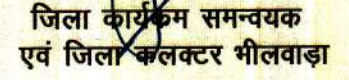 जिला कार्यक्रम समन्वयक
एवं जिला कलक्टर भीलवाड़ा